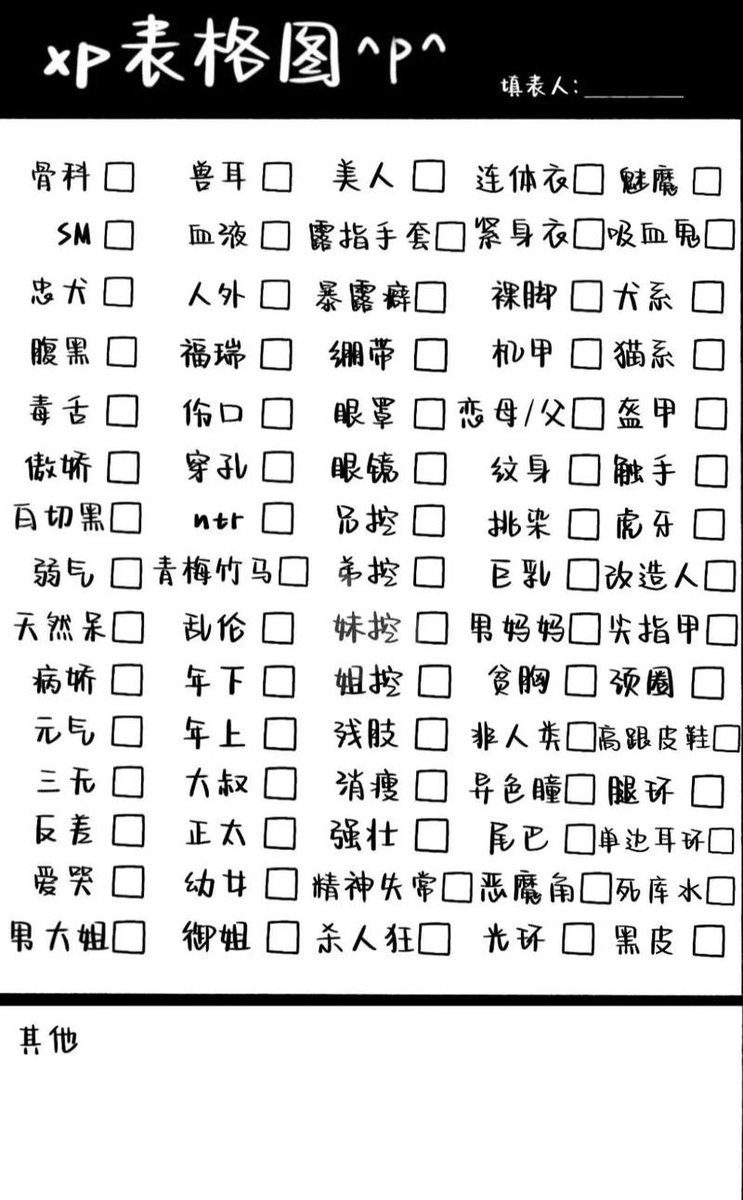 xp表格图^p^
填表人：________
骨科□ 兽耳□ 美人□ 连体衣□ 魅魔□
SM□ 血液□ 露指手套□ 紧身衣□ 吸血鬼□
忠犬□ 人外□ 暴露癖□ 裸脚□ 犬系□
腹黑□ 福瑞□ 绷带□ 机甲□ 猫系□
毒舌□ 伤口□ 眼罩□ 恋母/父□ 盔甲□
傲娇□ 穿孔□ 眼镜□ 纹身□ 触手□
白切黑□ ntr□ 兄控□ 挑染□ 虎牙□
弱气□ 青梅竹马□ 弟控□ 巨乳□ 改造人□
天然呆□ 乱伦□ 妹控□ 男妈妈□ 尖指甲□
病娇□ 年下□ 姐控□ 贫胸□ 颈圈□
元气□ 年上□ 残肢□ 非人类□ 高跟皮鞋□
三无□ 大叔□ 消瘦□ 异色瞳□ 腿环□
反差□ 正太□ 强壮□ 尾巴□ 单边耳环□
爱哭□ 幼女□ 精神失常□ 恶魔角□ 死库水□
男大姐□ 御姐□ 杀人狂□ 光环□ 黑皮□
其他